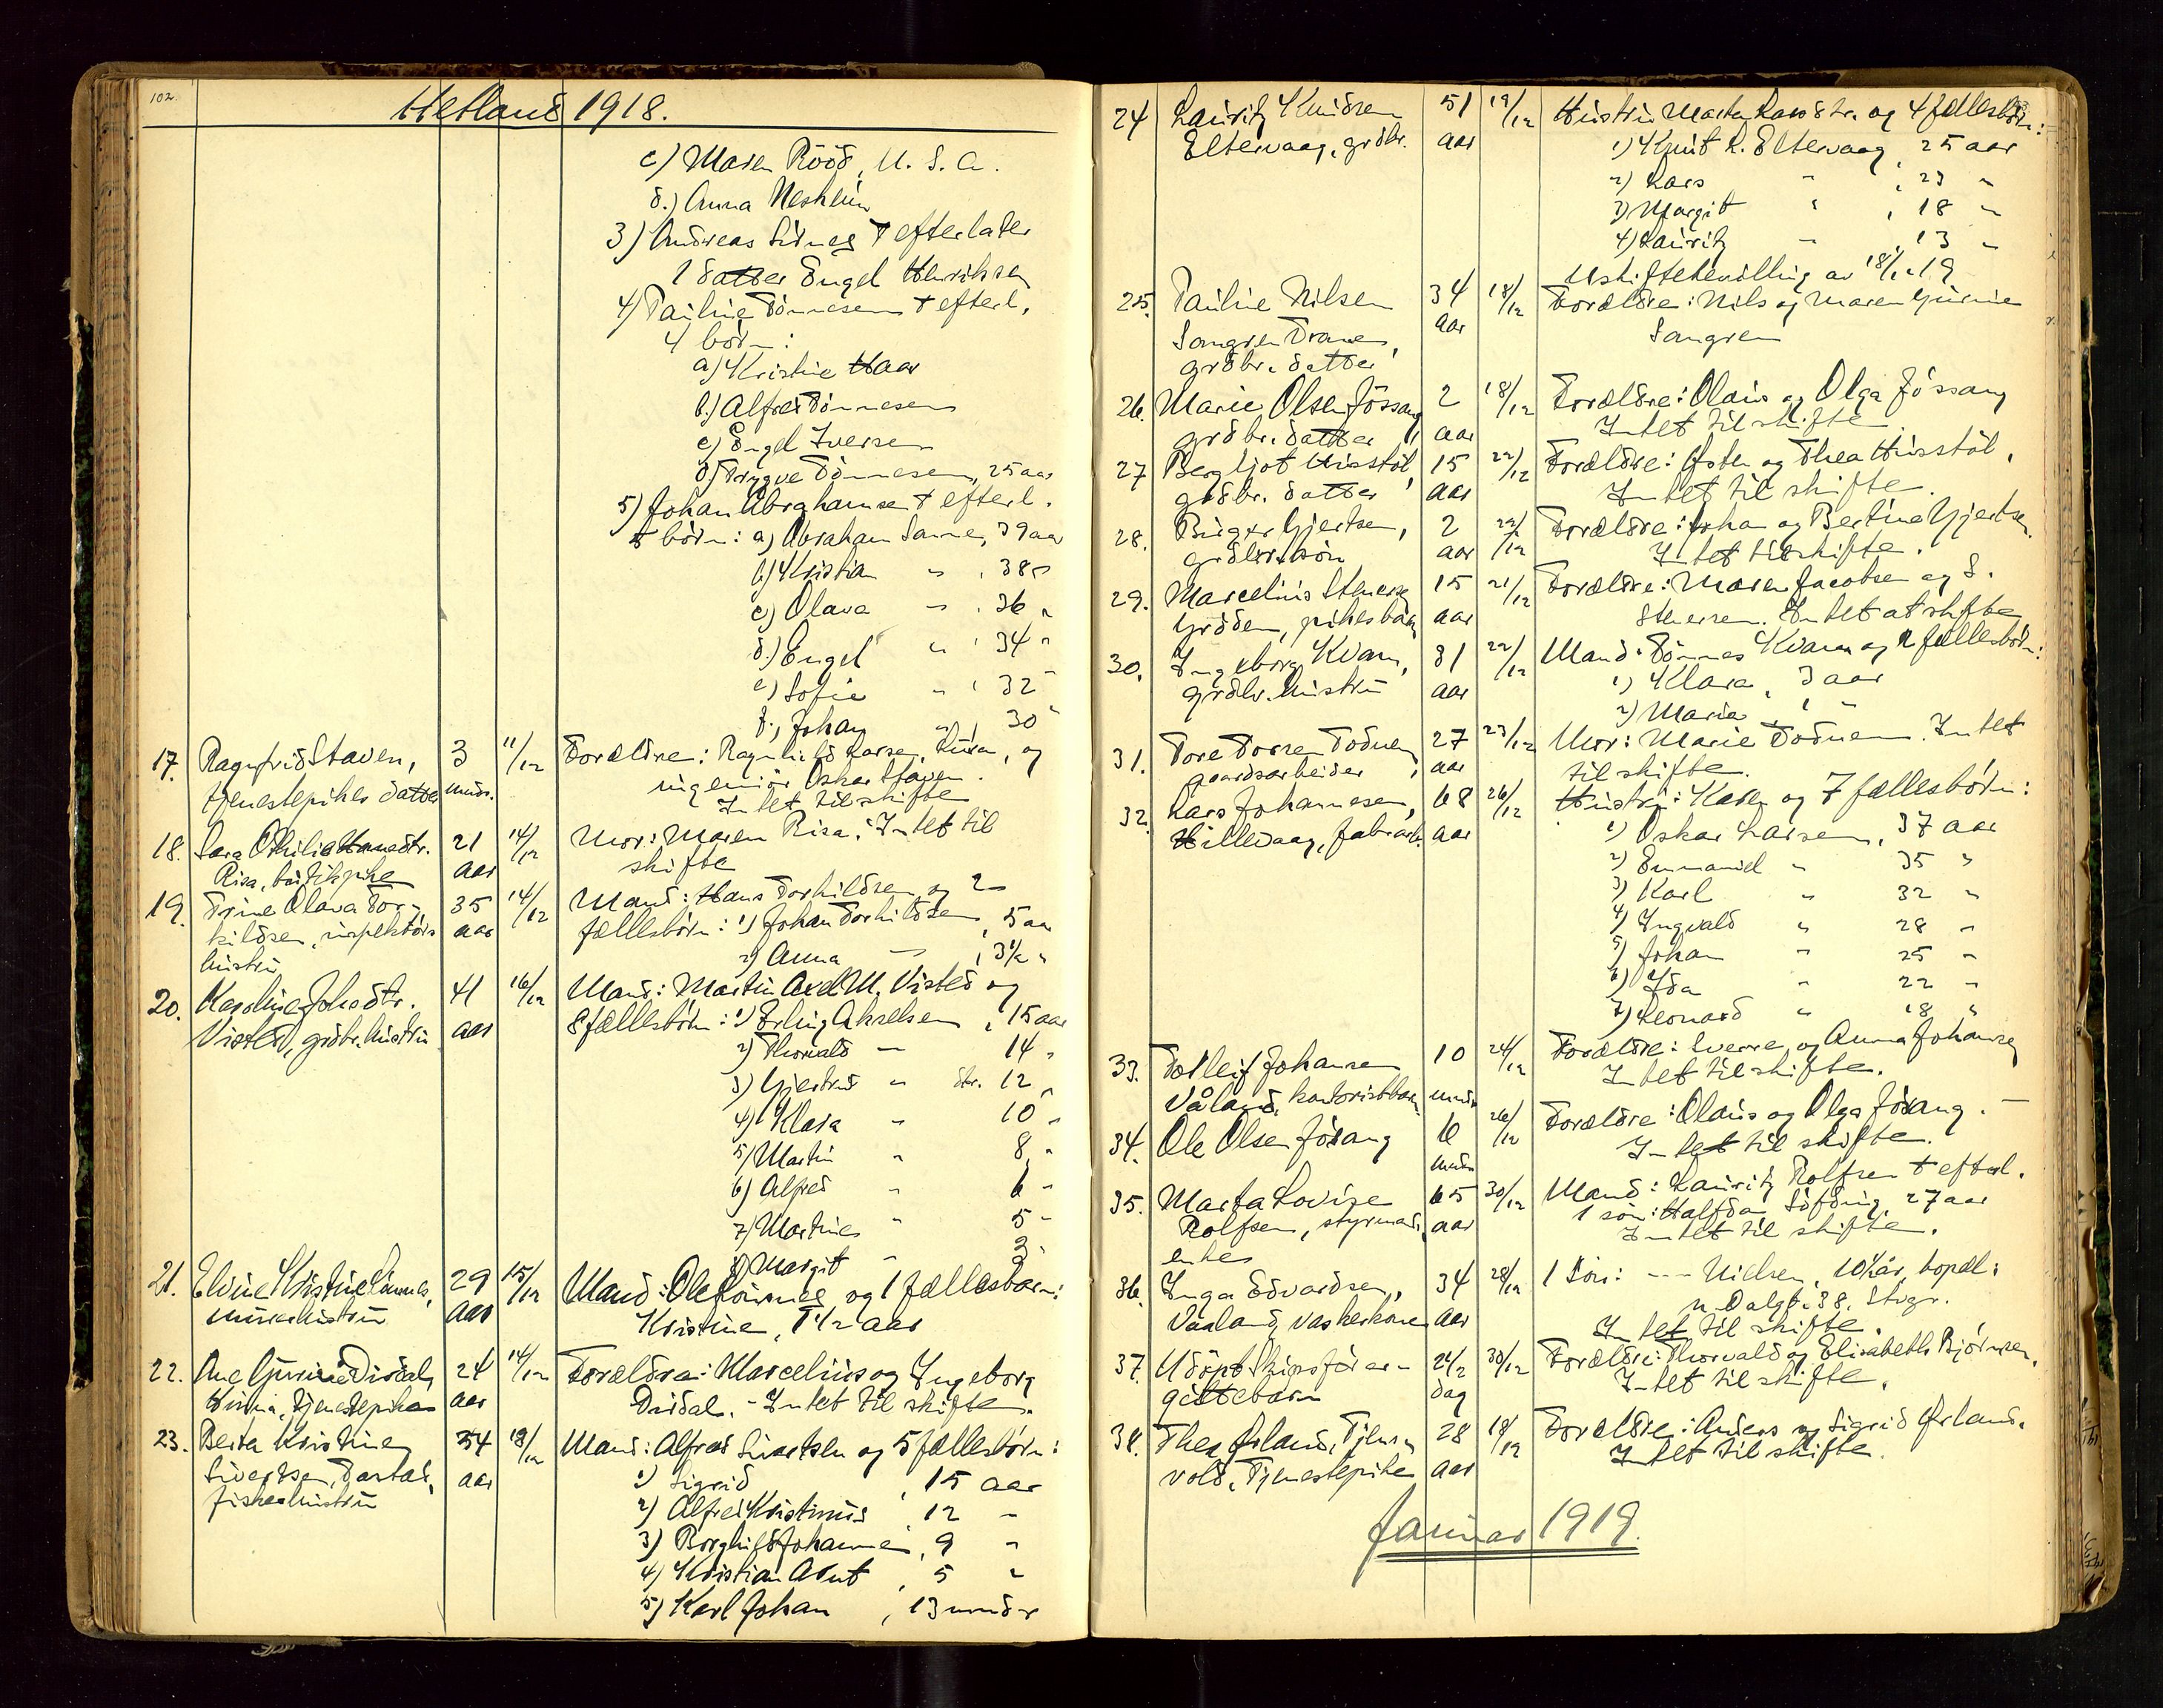 102.
Hetland 1918.
c) Maren Rööd, U. S. A.
d.) Anna
3) Andreas Sirnes † efterlater
1 datter Engel Henriksen
4) Pauline Tönnesen † efterl.
4 börn:
a) Kristine Haar
b.) Alfred Tönnesen
c) Engel Iversen
d.) Trygve Tönnesen, 25 aar
5) Johan Abrahamsen † efterl.
börn: a) Abraham Sanne, 39 aar
b) Kristian " , 38 "
c) Olava " , 36 "
d.) Engel " , 34 "
e) Sofie " , 32 "
f.) Johan " , 30 "
17. Ragnfrid Staven, 3 11/12 Forældre: Ragnhild Larsen, , og
tjenestepikes datter mndr. ingeniör Oskar Staven.
Intet til skifte
18. Sara Othilie Hansdtr. 21 14/12 Mor: Maren Risa. Intet til
Risa, butikpike aar skifte
19. Trine Olava Tor- 35 14/12 Mand: Hans Torkildsen og 2
kildsen, inspektörs aar fællesbörn: 1) Johan Torkildsen, 5 aar
hustru 2) Anna " , 3 1/2 "
20. Karoline Johsdtr. 41 16/12 Mand: Martin Axel M. Visted og
Visted, grdbr. hustru aar 8 fællesbörn: 1) Erling Akselsen, 15 aar
2) Thorvald " 14 "
3) Gjertrud " dtr. 12 "
4) Klara " 10 "
5) Martin " 8 "
6) Alfred " 6 "
7) Martines " 5 "
8) Margit " 3 "
21. Elvine Kristine Sömnes, 29 15/12 Mand: Ole Sömnes og 1 fællesbarn:
murerhustru aar Kristine, 1 1/2 aar
22. Ane Gurine Dirdal, 24 14/12 Forældre: Marcelius og Ingeborg
Hinna, tjenestepike aar Dirdal. - Intet til skifte.
23. Berta Kristine 34 18/12 Mand: Alfred Sivertsen og 5 fællesbörn:
Sivertsen, Dastad, aar 1) Sigrid , 15 aar
fiskerhustru 2) Alfred Kristinus , 12 "
3) Borghild Johanne , 9 "
4) Kristian Arnt , 5 "
5) Karl Johan , 13 mndr
24 Lauritz Knudsen 51 19/12 Hustru Marta Larsdtr. og 4 fællesbörn:
Eltervaag, grdbr. aar 1) Knut L. Eltervaag, 25 aar
2) Lars " , 23 "
3) Margit " , 18 "
4) Lauritz " , 13 "
Uskiftebevilling av 18/1-19
25. Pauline Nilsen 34 18/12 Forældre: Nils og Maren Gurine
Sangren Dranen, aar Sangren
grdbr. datter
26. Marie Olsen Jössang 2 18/12 Forældre: Olaus og Olga Jössang
grdbr. datter aar Intet til skifte
27 Bergljot Husstöl, 15 22/12 Forældre: Osten og Thea Husstöl,
grdbr. datter aar Intet til skifte.
28. Birger Gjertsen, 2 22/12 Forældre: Johan og Bertine Gjertsen
grdbr. sön aar Intet til skifte.
29. Marcelius Stenersen 15 21/12 Forældre: Maren Jacobsen og S.
Gröden, pikesbarn aar Stenersen. Intet at skifte
30. Ingeborg Kvam, 31 22/12 Mand: Tönnes Kvam og 2 fællesbörn:
grdbr. hustru aar 1) Klara, 3 aar
2) Maria, 1 "
31. Tore Torsen Todnem 27 23/12 Mor: Marie Todnem. Intet
gaardsarbeider aar til skifte.
32. Lars Johannesen, 68 26/12 Hustru: Karen og 7 fællesbörn:
Hillevaag, fabrarb. aar 1) Oskar Larsen, 37 aar
2) Emmanuel " 35 "
3) Karl " 32 "
4) Ingvald " 28 "
5) Johan " 25 "
6) Ida " 22 "
7) Leonard " 18 "
33. Totleif Johansen 10 24/12 Forældre: Sverre og Anna Johansen
Våland, kontoristbarn mndr Intet til skifte.
34. Ole Olsen Jösang 6 26/12 Forældre: Olaus og Olga Jösang. —
mndr Intet til skifte.
35. Marta Lovise 65 30/12 Mand: Lauritz Rolfsen † efterl.
Rolfsen, styrmands aar 1 sön: Halfdan Söfding, 27 aar
enke Intet til skifte.
36. Inga Edvardsen, 34 28/12 1 sön: --- Nielsen, 10 1/2 år, bopæl:
Vaaland, vaskekone aar n. Dalgt. 38, Stvgr.
Intet til skifte.
37. Udöpt Skipsförer- 24 1/2 30/12 Forældre: Thorvald og Elisabeth Björnsen.
giftebarn dag Intet til skifte.
38. Thea Ørland, Tjens- 28 18/12 Forældre: Anders og Sigrid Ørland.
vold, Tjenestepike aar Intet til skifte.
Januar 1919.